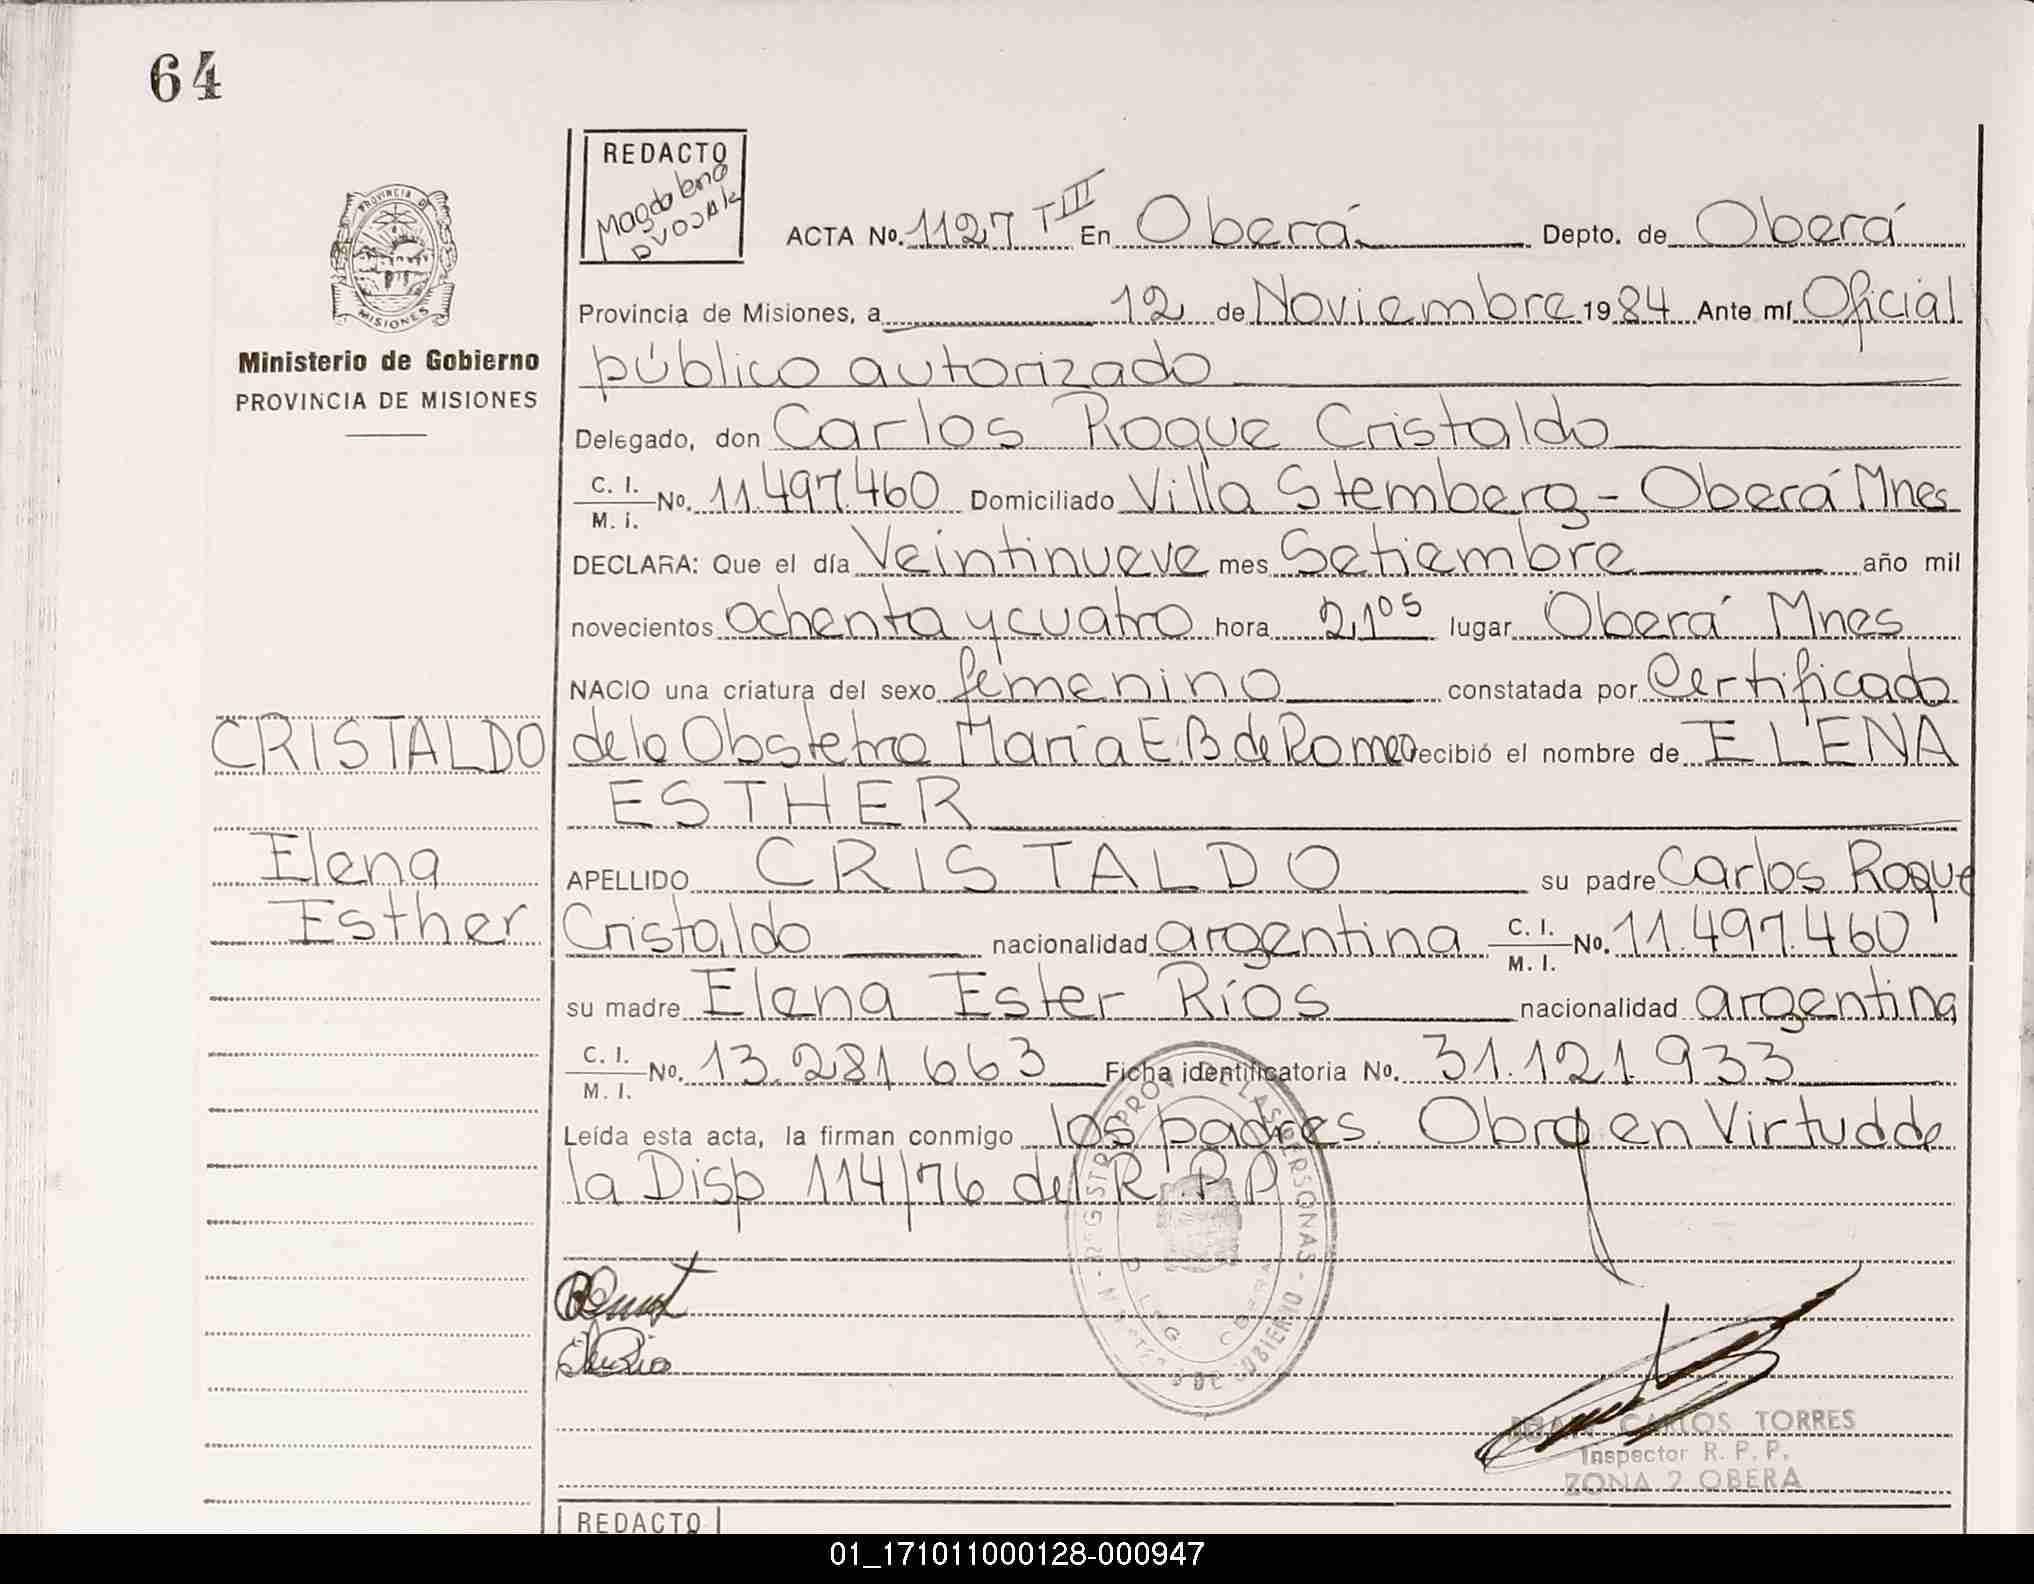 64
REDACTO
Magdalena
DVOJAK
ACTA No. 1127 T III En Oberá Depto. de Oberá
PROVINCIA DE
MISIONES
Provincia de Misiones, a 12 de Noviembre 1984 Ante mí Oficial
Ministerio de Gobierno
público autorizado
PROVINCIA DE MISIONES
Delegado, don Carlos Roque Cristaldo
C. I. / M. i. No. 11.497.460 Domiciliado Villa Stemberg - Oberá Mnes
DECLARA: Que el día Veintinueve mes Setiembre año mil
novecientos ochenta y cuatro hora 21 05 lugar Oberá Mnes
NACIO una criatura del sexo femenino constatada por Certificado
CRISTALDO
de la Obstetra María E.B de Romeo recibió el nombre de ELENA
ESTHER
Elena
APELLIDO CRISTALDO su padre Carlos Roque
Esther
Cristaldo nacionalidad argentina C. I. / M. I. No. 11.497.460
su madre Elena Ester Ríos nacionalidad argentina
C. I. / M. I. No. 13.281.663 Ficha identificatoria No. 31.121.933
Leída esta acta, la firman conmigo los padres. Obra en Virtud de
la Disp 114/76 del R.P.P
CARLOS TORRES
Inspector R. P. P.
ZONA 2 OBERA
REDACTO
01_171011000128-000947